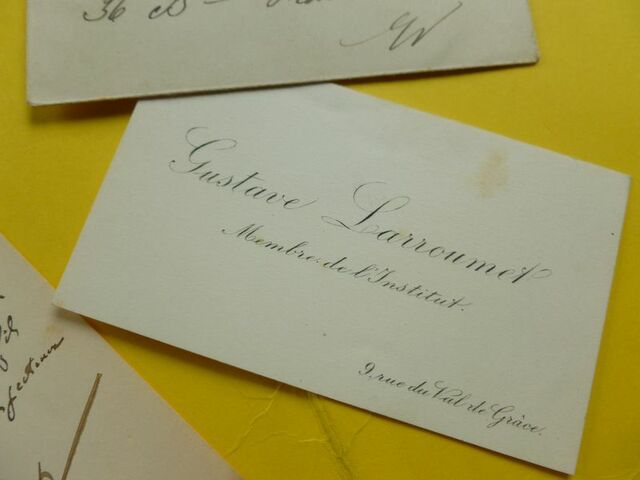 36 B
Gustave Larroumet
Membre de l'Institut.
9, rue du Val de Grâce.